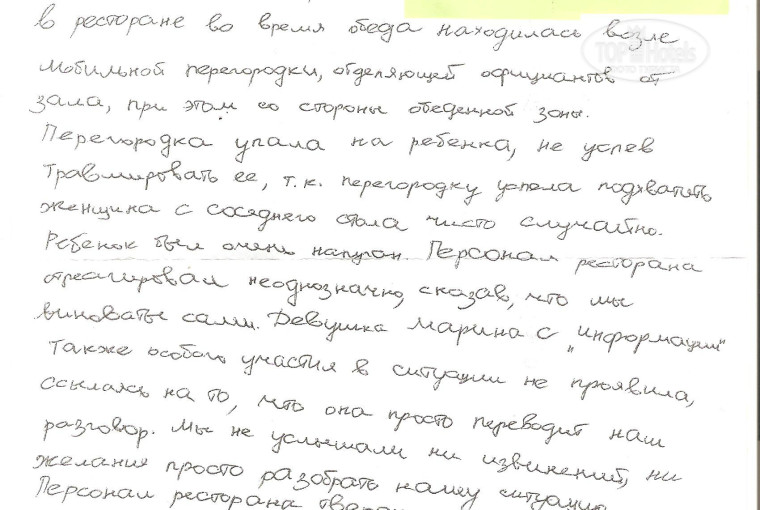 в ресторане во время обеда находилась возле
мобильной перегородки, отделяющей официантов от
зала, при этом со стороны обеденной зоны.
Перегородка упала на ребенка, не успев
травмировать ее, т.к. перегородку успела подхватить
женщина с соседнего стола чисто случайно.
Ребенок был очень напуган. Персонал ресторана
отреагировал неоднозначно, сказав, что мы
виноваты сами. Девушка Марина с "информации"
также особого участия в ситуации не проявила,
ссылаясь на то, что она просто переводит наш
разговор. Мы не услышали ни извинений, ни
желания просто разобрать нашу ситуацию.
Персонал ресторана
TOP Hotels